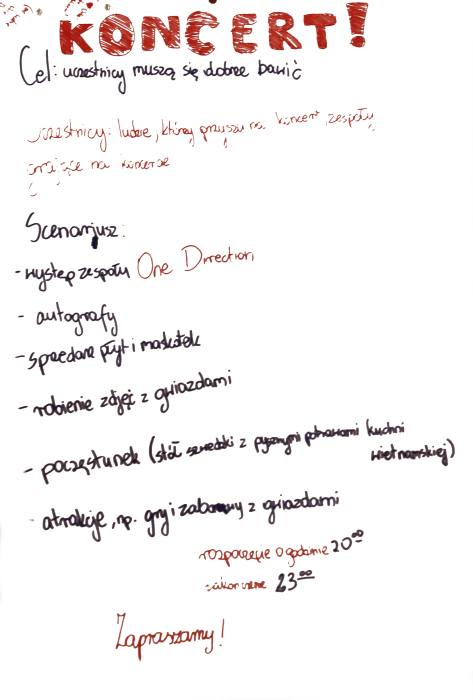 KONCERT!
Cel: uczestnicy muszą się dobrze bawić
uczestnicy: ludzie, którzy przyszli na koncert, zespoły
grające na koncercie
Scenariusz:
- występ zespołu One Direction
- autografy
- sprzedaż płyt i maskotek
- robienie zdjęć z gwiazdami
- poczęstunek (stół szwedzki z pysznymi potrawami kuchni
wietnamskiej)
- atrakcje, np. gry i zabawy z gwiazdami
rozpoczęcie o godzinie 20⁰⁰
zakończenie 23⁰⁰
Zapraszamy!